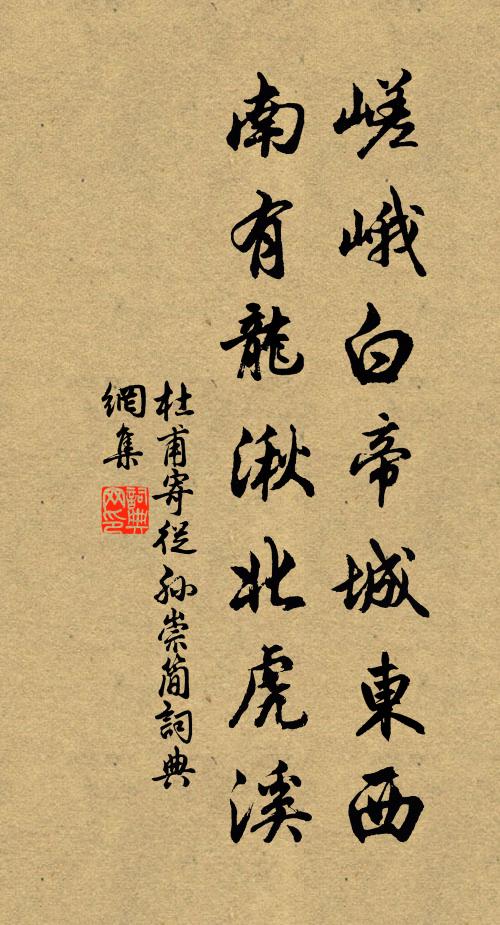 嵯峨白帝城東西
南有龍湫北虎溪
杜甫寄從孫崇簡詞典
網集
詞典網印